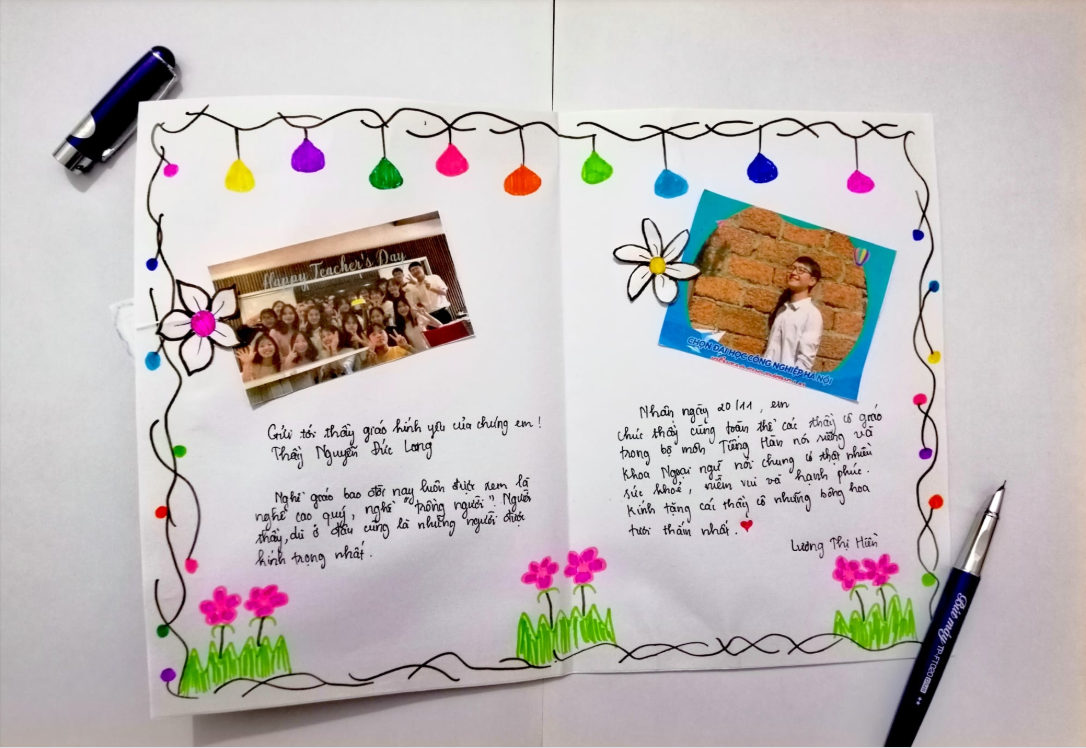 Happy Teacher's Day
Gửi tới thầy giáo kính yêu của chúng em!
Thầy Nguyễn Đức Long
Nghề giáo bao đời nay luôn được xem là
nghề cao quý, nghề "trồng người". Người
thầy, dù ở đâu cũng là những người được
kính trọng nhất.
CHỌN ĐẠI HỌC CÔNG NGHIỆP HÀ NỘI
Nhân ngày 20/11, em
chúc thầy cùng toàn thể các thầy cô giáo
trong bộ môn Tiếng Hàn nói riêng và
khoa Ngoại ngữ nói chung có thật nhiều
sức khoẻ, niềm vui và hạnh phúc.
Kính tặng các thầy cô những bông hoa
tươi thắm nhất.
Lương Thị Hiền
Bút máy TP-FT020